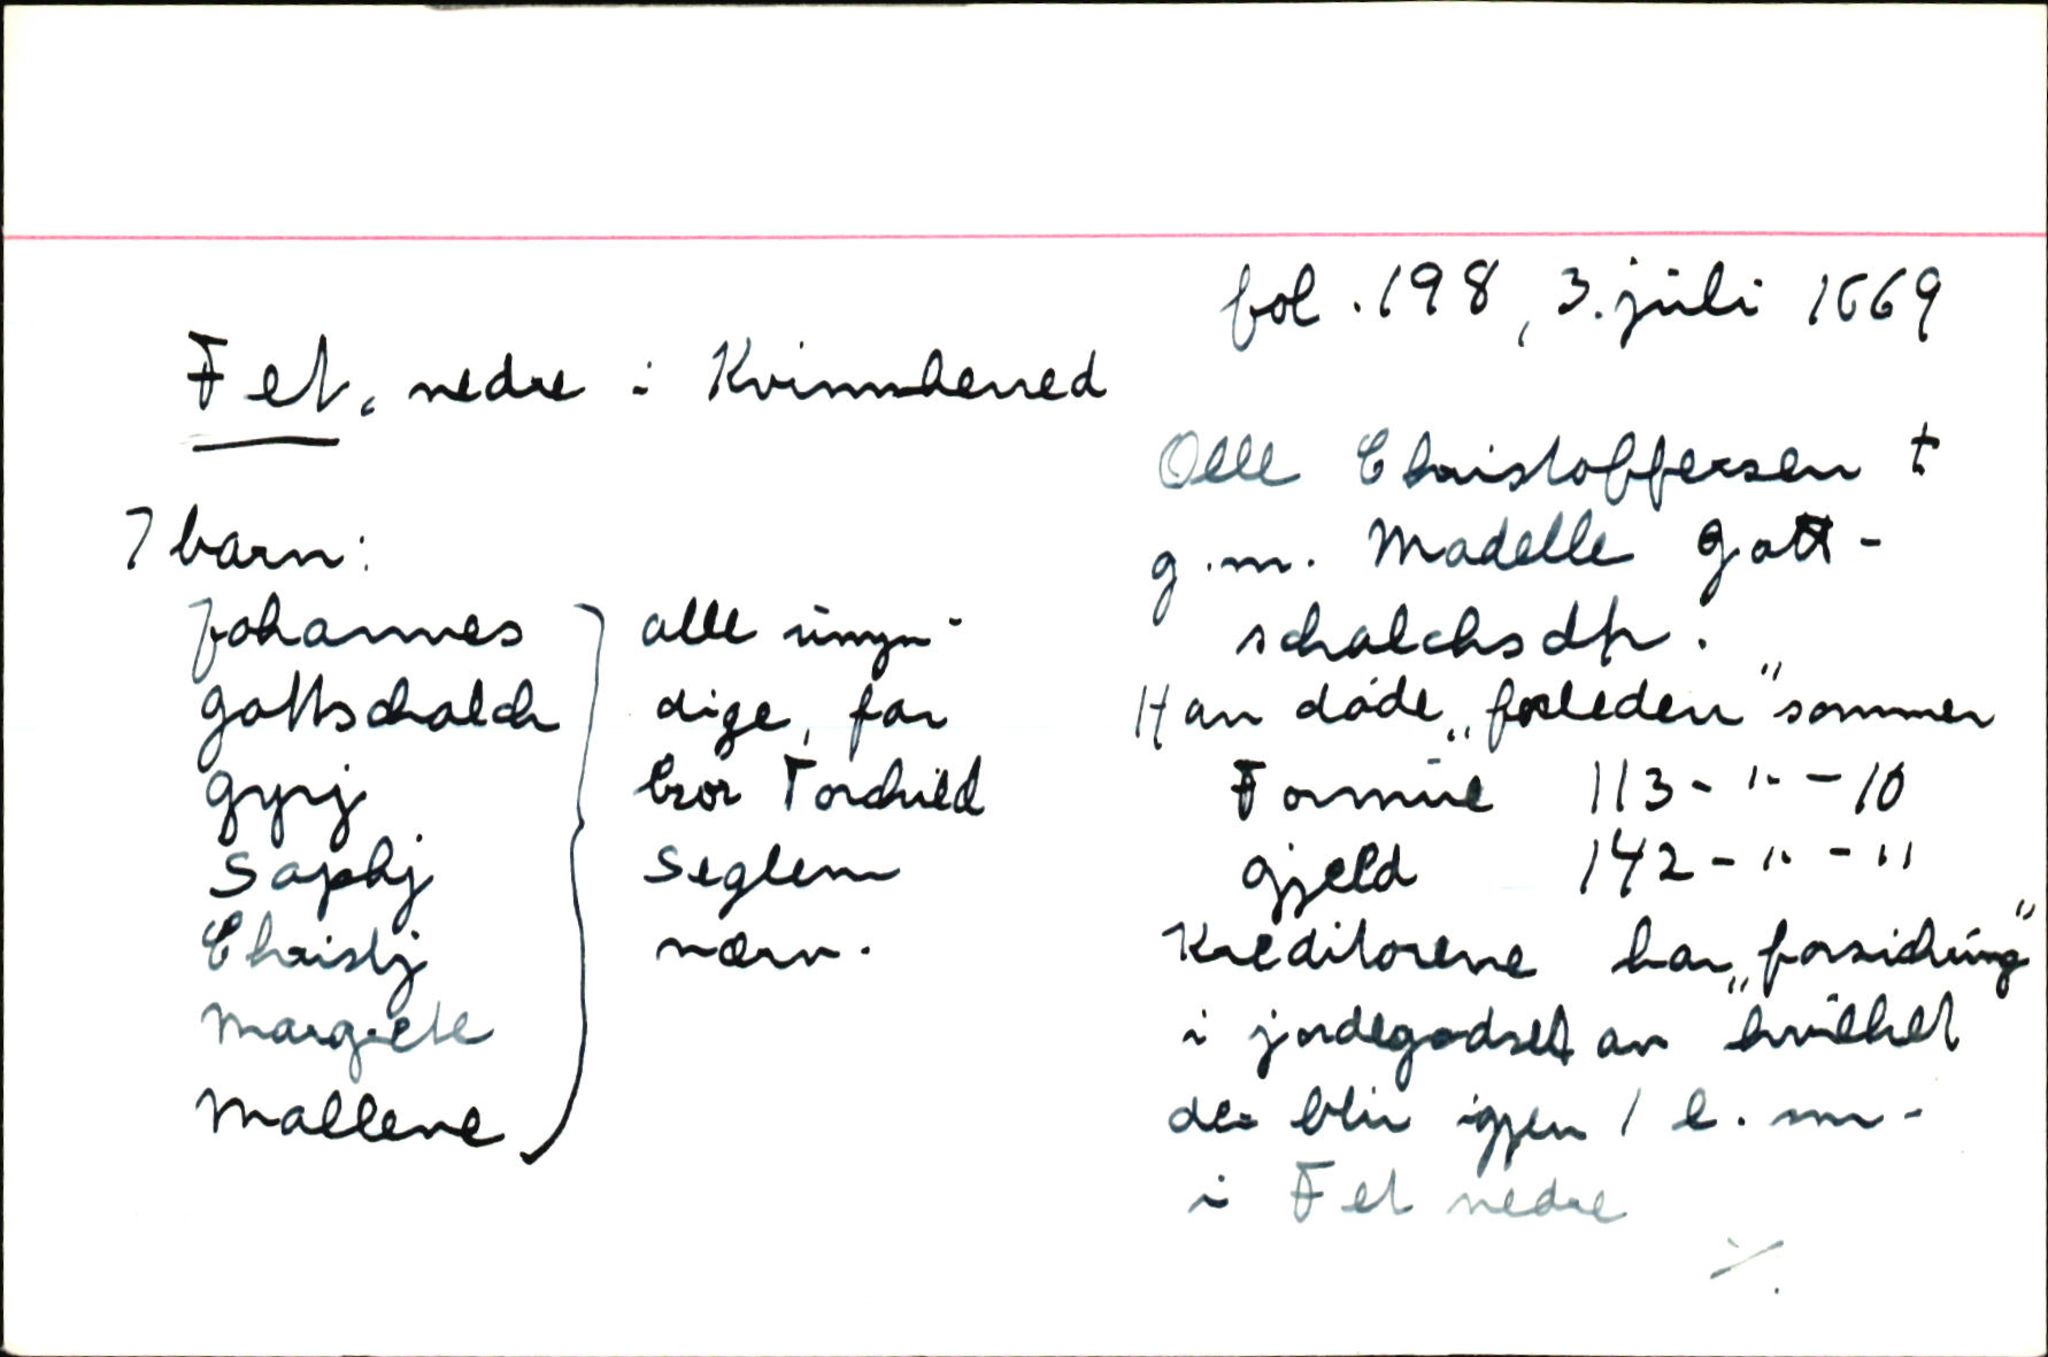 fol. 198, 3. juli 1669
Fet, nedre i Kvinnherred
Olle Christoffersen †
g.m. Madelle Gott-
schalchsdtr.
Han døde „forleden" sommer
Formue 113 - " - 10
Gjeld 142 - " - 11
Kreditorene har „forsichring"
i jordegodset av hvilket
der blir igjen 1 l. sm.
i Fet nedre
./.
7 barn:
Johannes
Gottschalch
Gyrj
Saphj
Christj
Margrete
Mallene
alle umyn-
dige, far
bror Torchild
Seglem
værn.